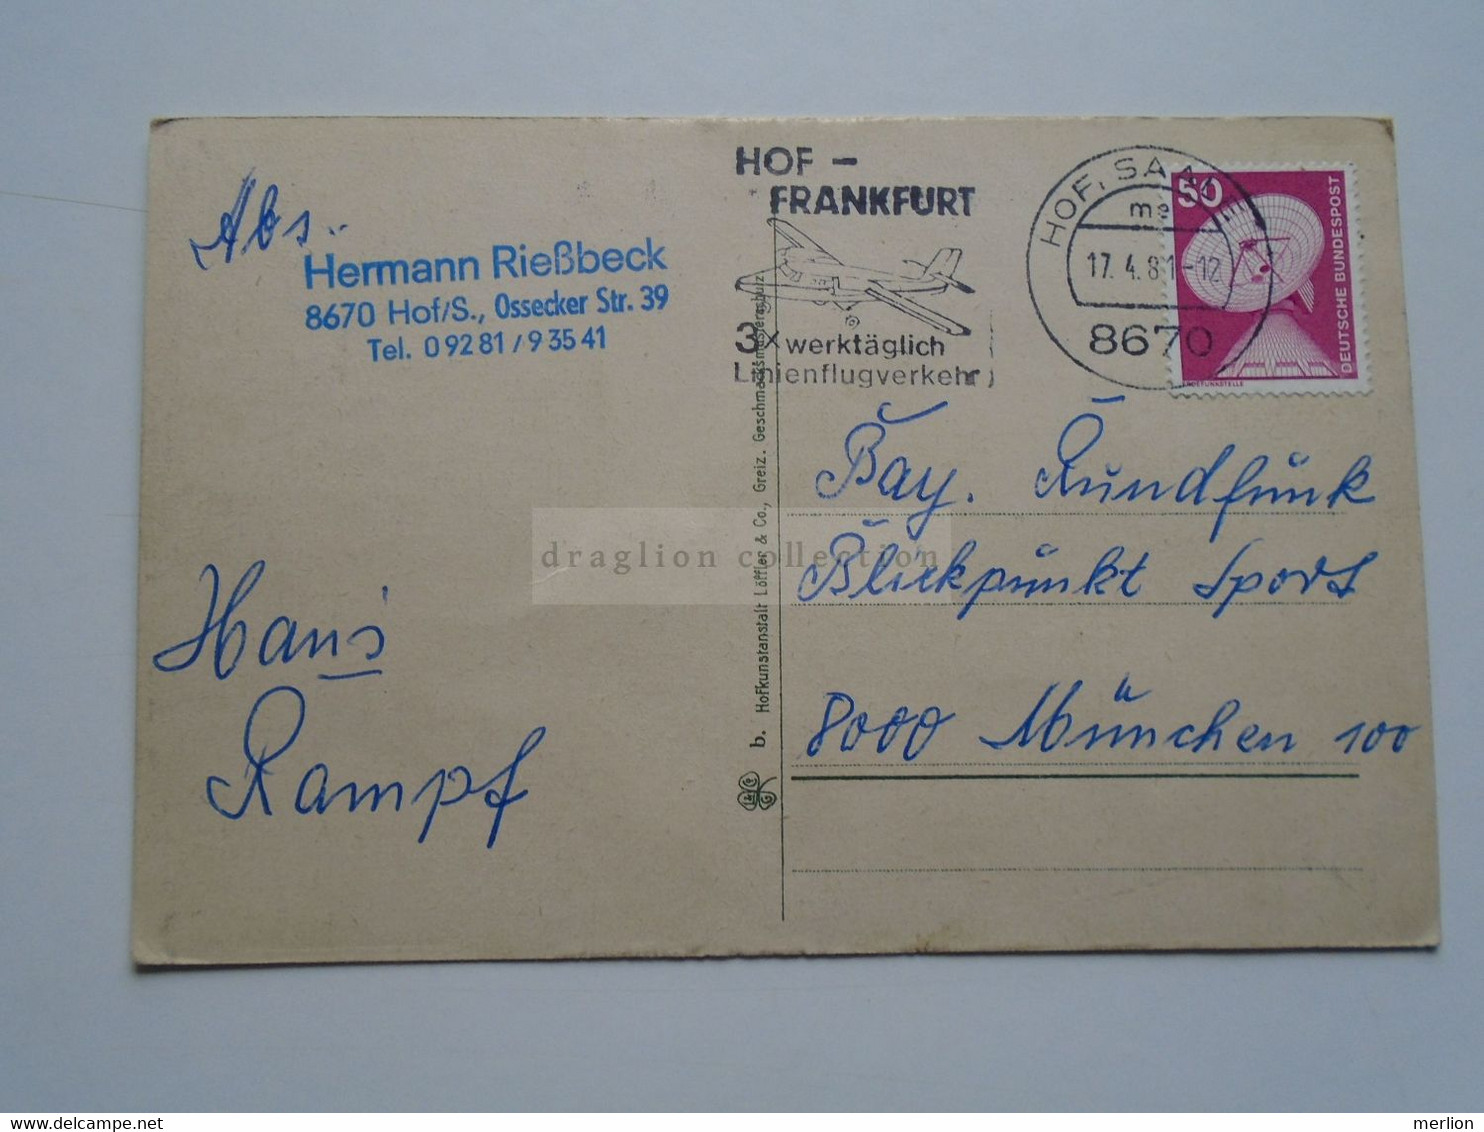 Abs.
Hermann Rießbeck
8670 Hof/S., Ossecker Str. 39
Tel. 0 92 81 / 9 35 41
Hans
Rampf
HOF –
FRANKFURT
3x werktäglich
Linienflugverkehr
HOF, SAALE
me
17. 4. 81-12
8670
50
DEUTSCHE BUNDESPOST
b. Hofkunstanstalt Löffler & Co., Greiz. Geschmacksmusterschutz
Bay. Rundfunk
Blickpunkt Sport
8000 München 100
draglion collection
www.delcampe.net
merlion